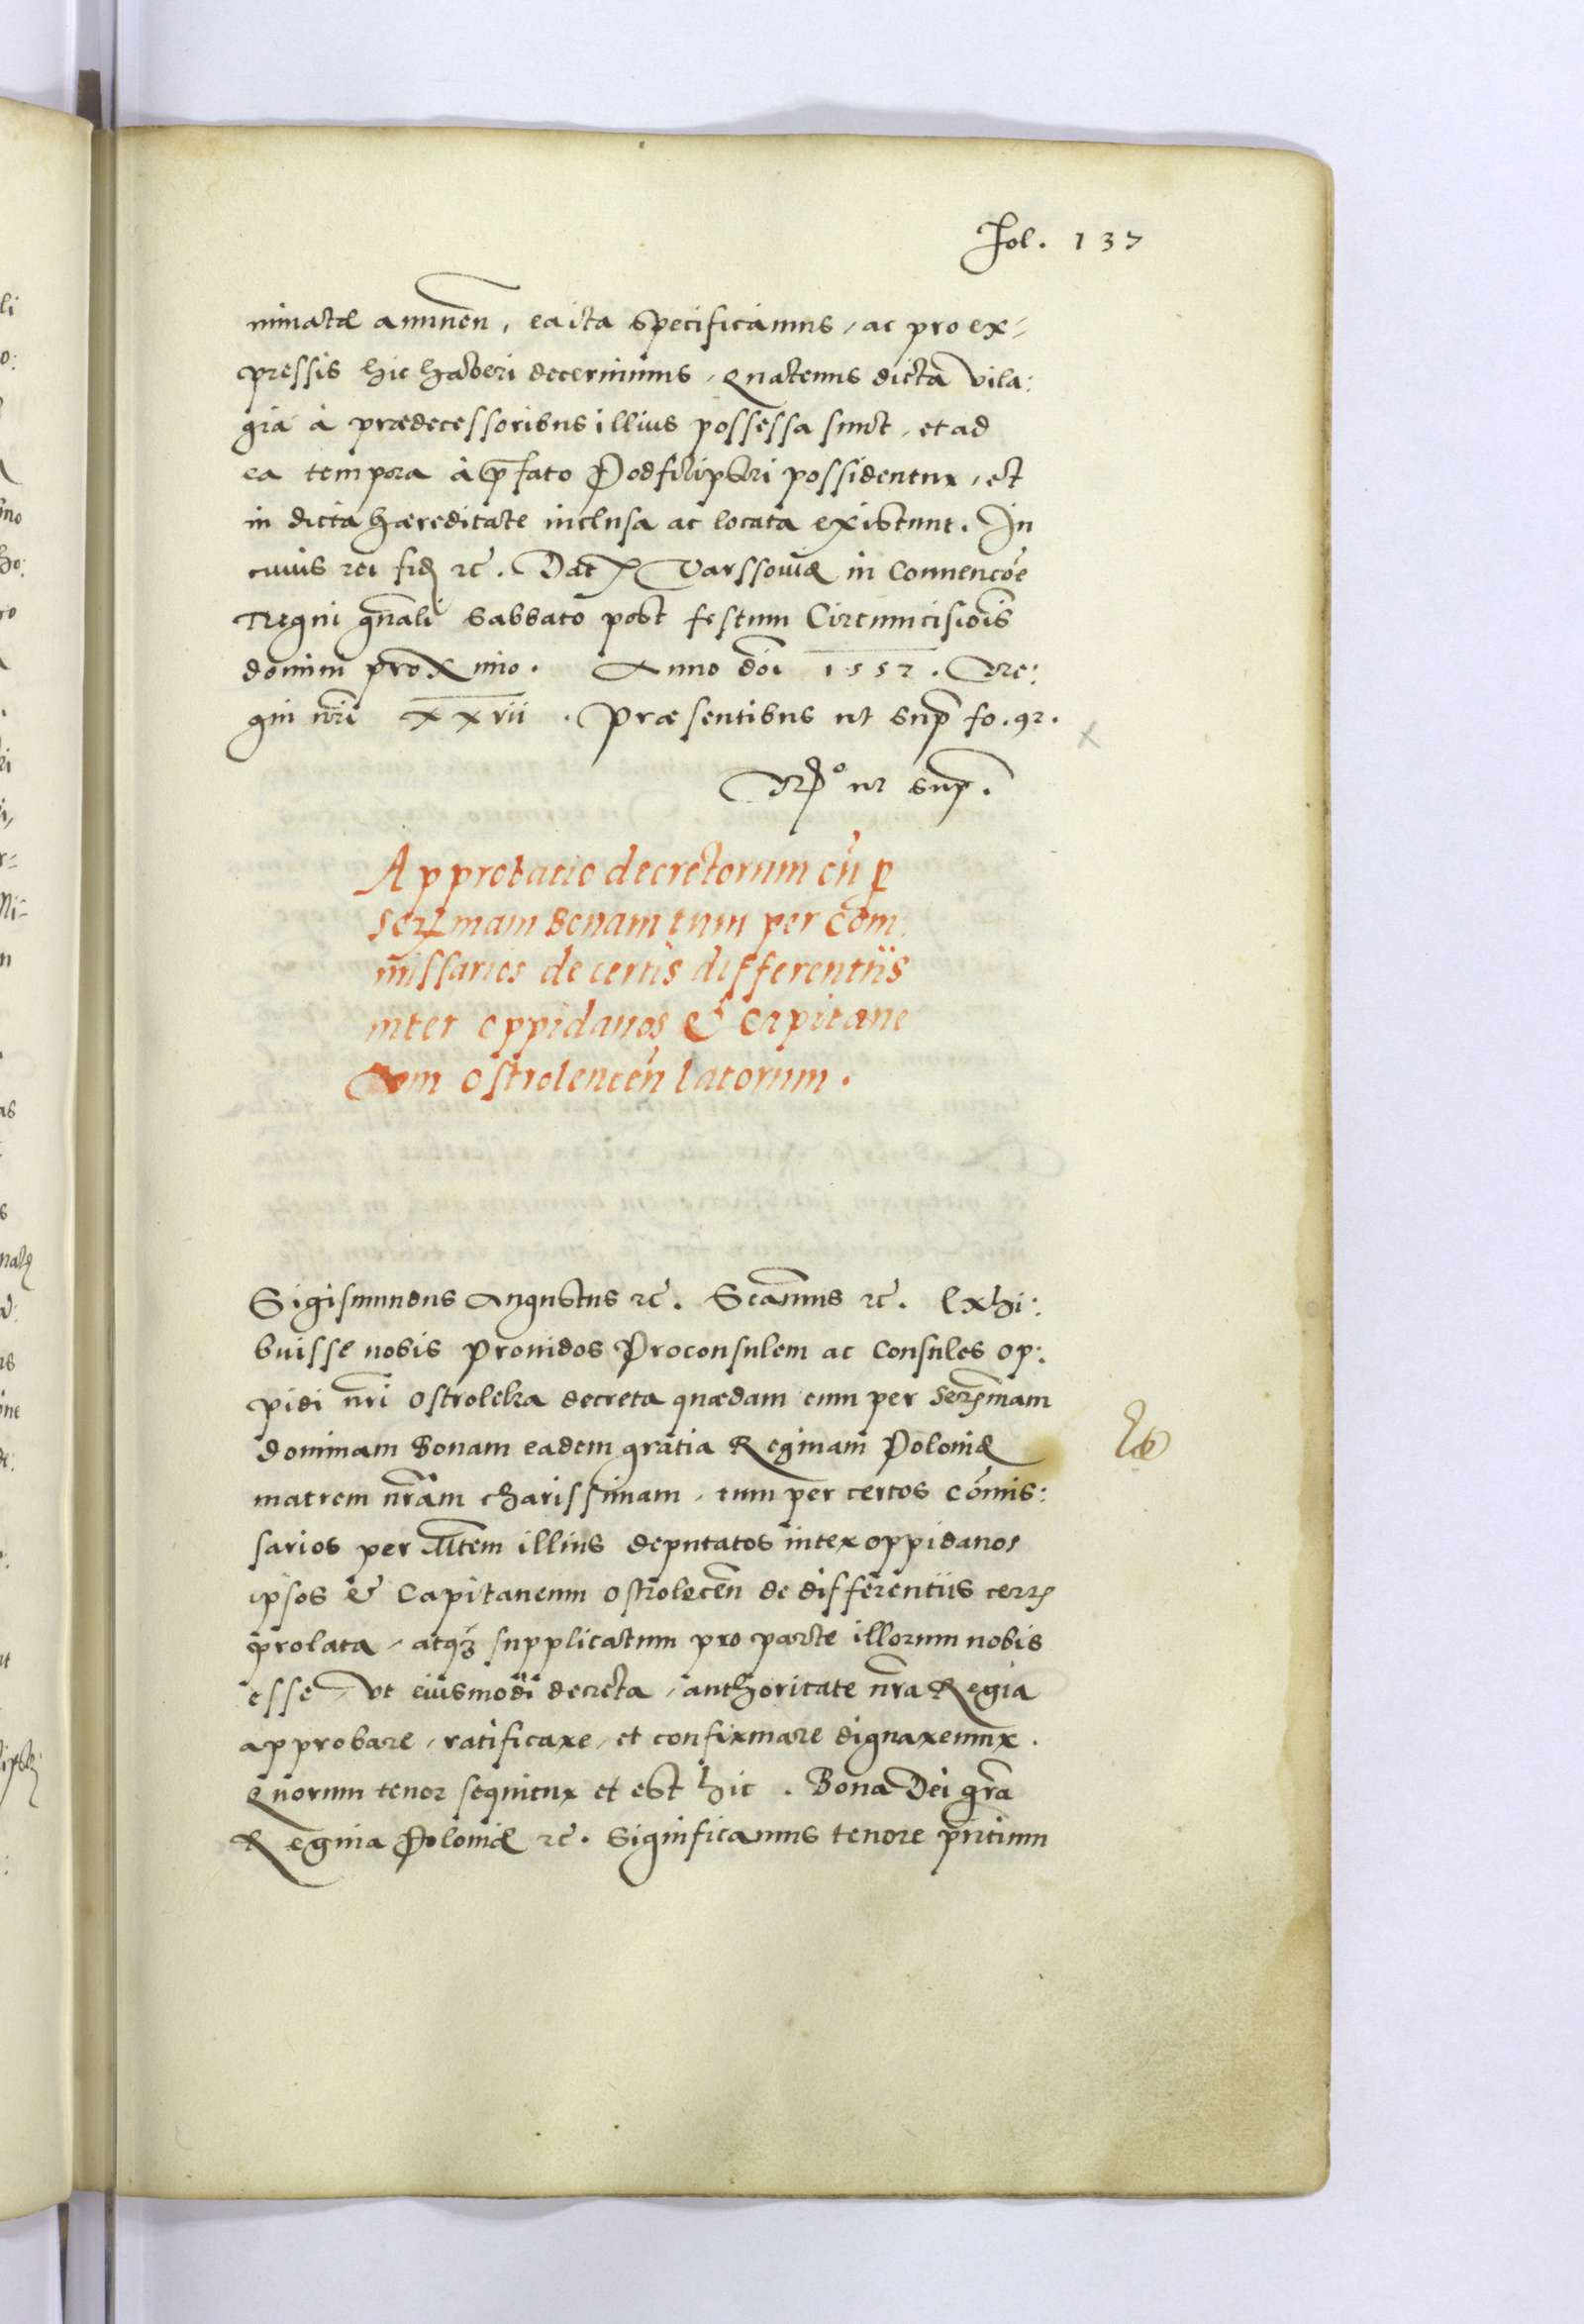 Fol. 137
minatæ a̅mnen̄, ea ita specificamus, ac pro ex-
pressis hic haberi decernimus, Quatenus dicta vila:
gia à prædecessoribus illius possessa sunt, et ad
ea tempora à p̄fato Podfilipski possidentur, et
in dicta hæreditate inclusa ac locata existunt. In
cuius rei fid. &c. Dat. Varssouiæ in Conuenco̅e
Regni gn̄ali Sabbato post festum Circumcisio̅is
domini proximo. Anno do̅i 1552. Re:
gni nr̄i xxvii. Præsentibus ut sup̄ fo. 92.
ut sup̄.
Approbatio decretorum cū per
Ser̄mam Bonam tum per Com
missarios de certis differentiis
inter oppidanos & Capitane
um Ostrolencen̄ latorum.
Sigismundus Augustus &c. S̄camus &c. Exhi:
buisse nobis prouidos Proconsulem ac Consules op:
pidi nr̄i Ostroleka decreta quædam cum per Seren̄mam
dominam Bonam eadem gratia Reginam Poloniæ
matrem nr̄am charissimam, tum per certos co̅mis:
sarios per M̄tem illius deputatos inter oppidanos
ipsos & Capitaneum Ostrolecen̄ de differentiis certis
prolata, atq; supplicatum pro parte illorum nobis
esse, vt eiusmodi decreta, authoritate nr̄a Regia
approbare, ratificare, et confirmare dignaremur.
Quorum tenor sequitur et est hic. Bona Dei gr̄a
Regina Poloniæ &c. Significamus tenore pn̄tium